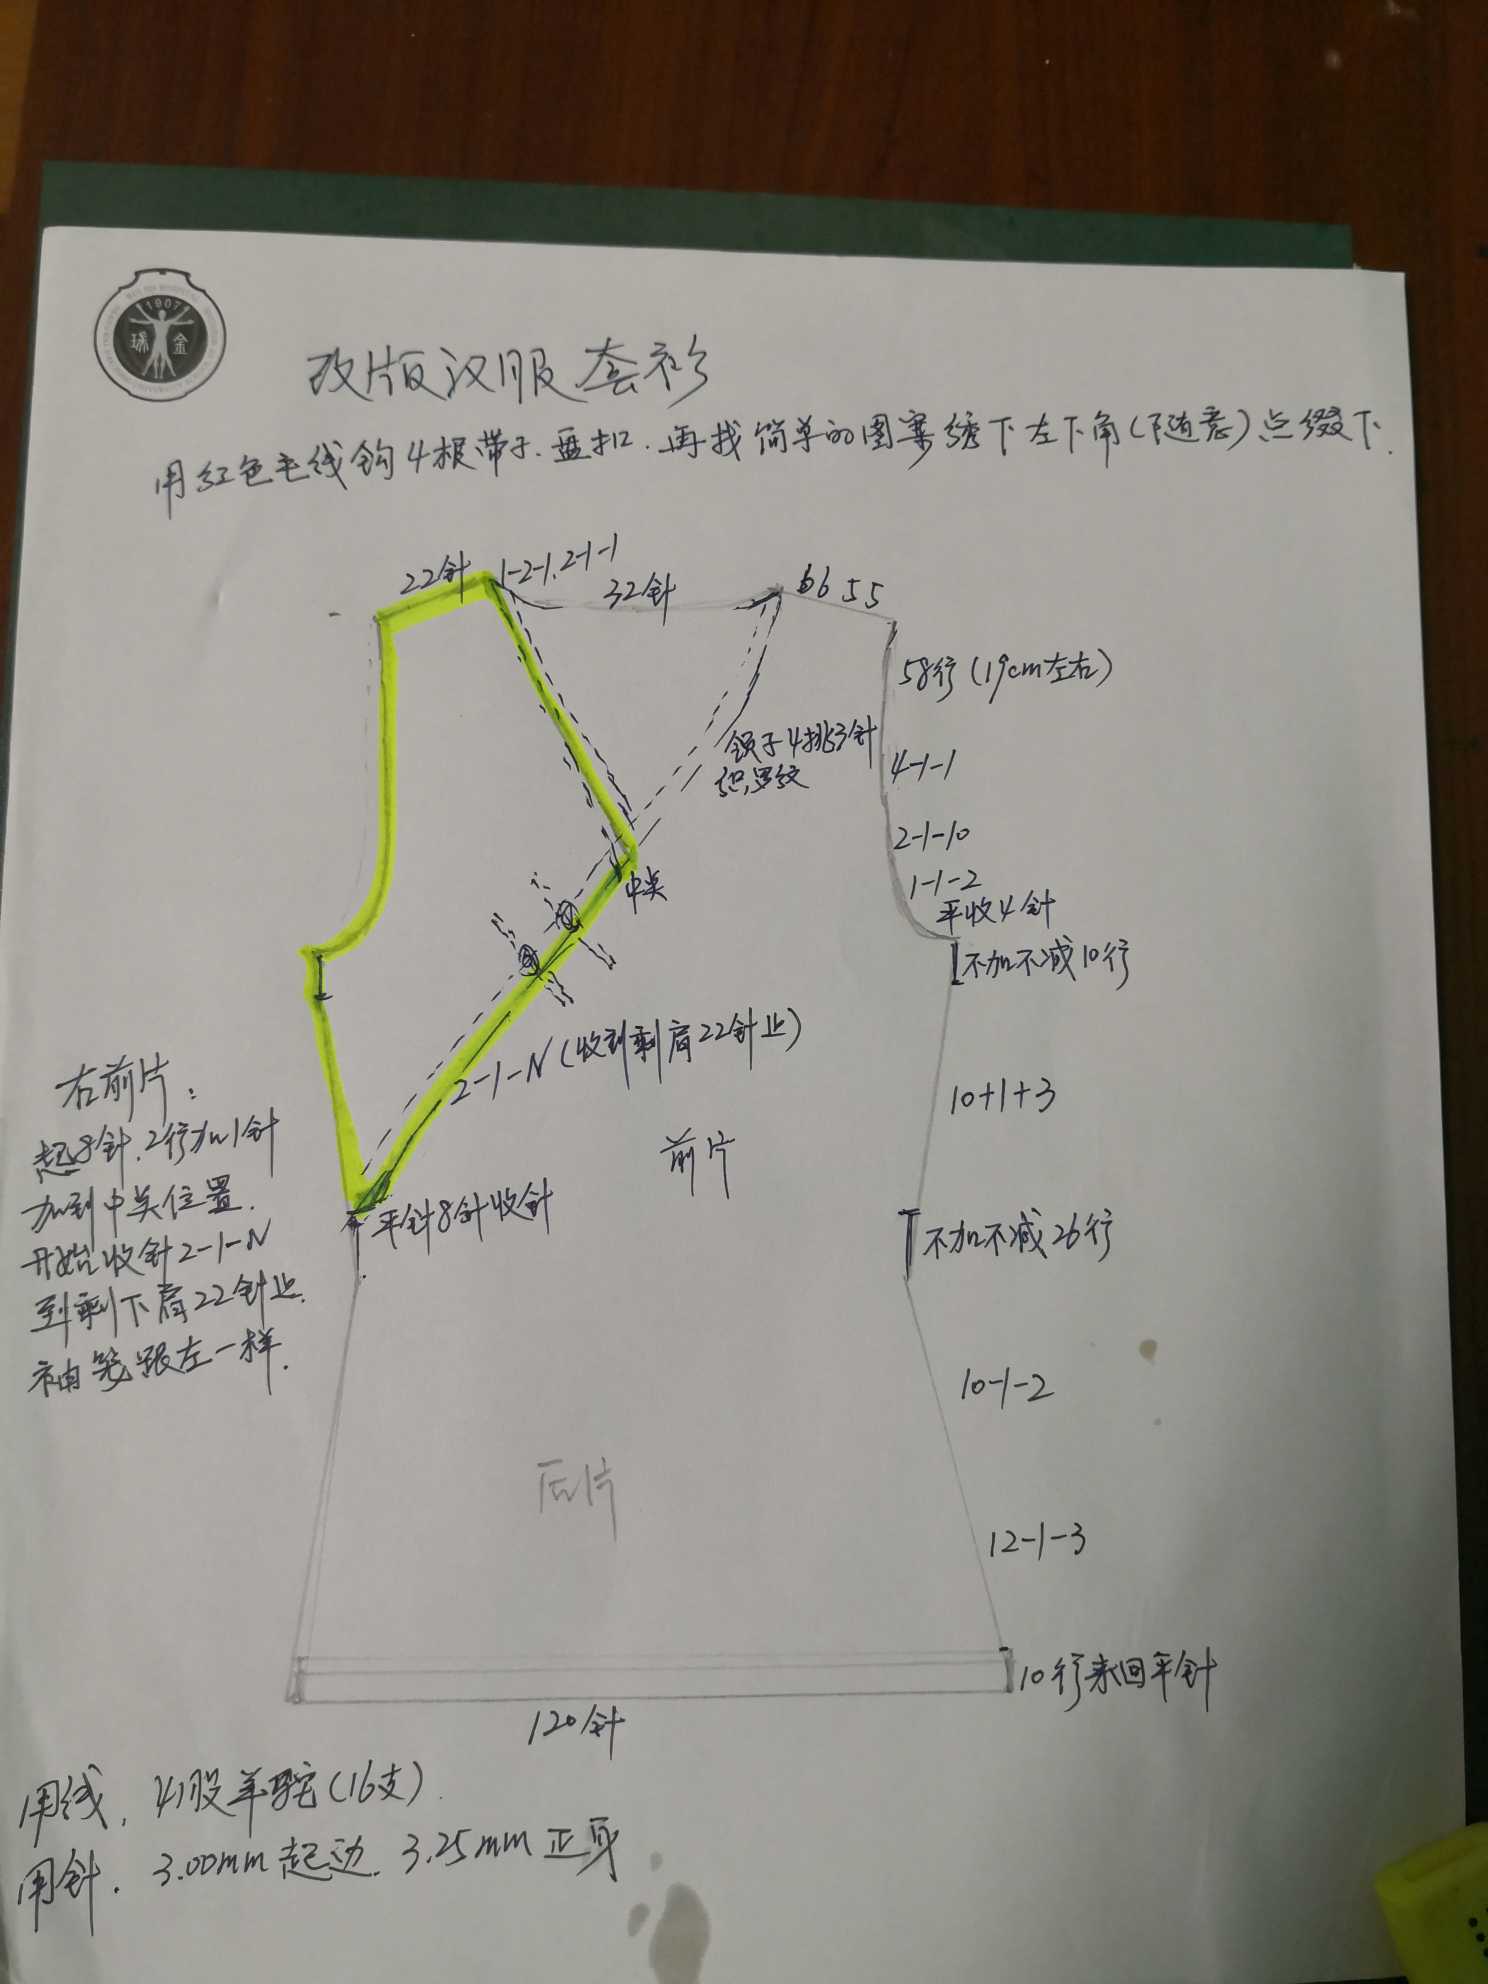 1907
珠 金
改版汉服套衫
用红色毛线钩4根带子.盘扣.再找简单的图案绣下左下角(下随意)点缀下.
22针
1-2-1.2-1-1
32针
66 55
58行(19cm左右)
领子4挑3针
织罗纹
4-1-1
2-1-10
1-1-2
平收4针
不加不减10行
中点
2-1-N(收到剩肩22针止)
10+1+3
前片
平针8针收针
不加不减26行
右前片:
起8针.2行加1针
加到中点位置.
开始收针2-1-N
到剩下肩22针止.
袖笼跟左一样.
10-1-2
后片
12-1-3
10行来回平针
120针
用线.4股羊驼(16支).
用针.3.00mm起边.3.25mm正身